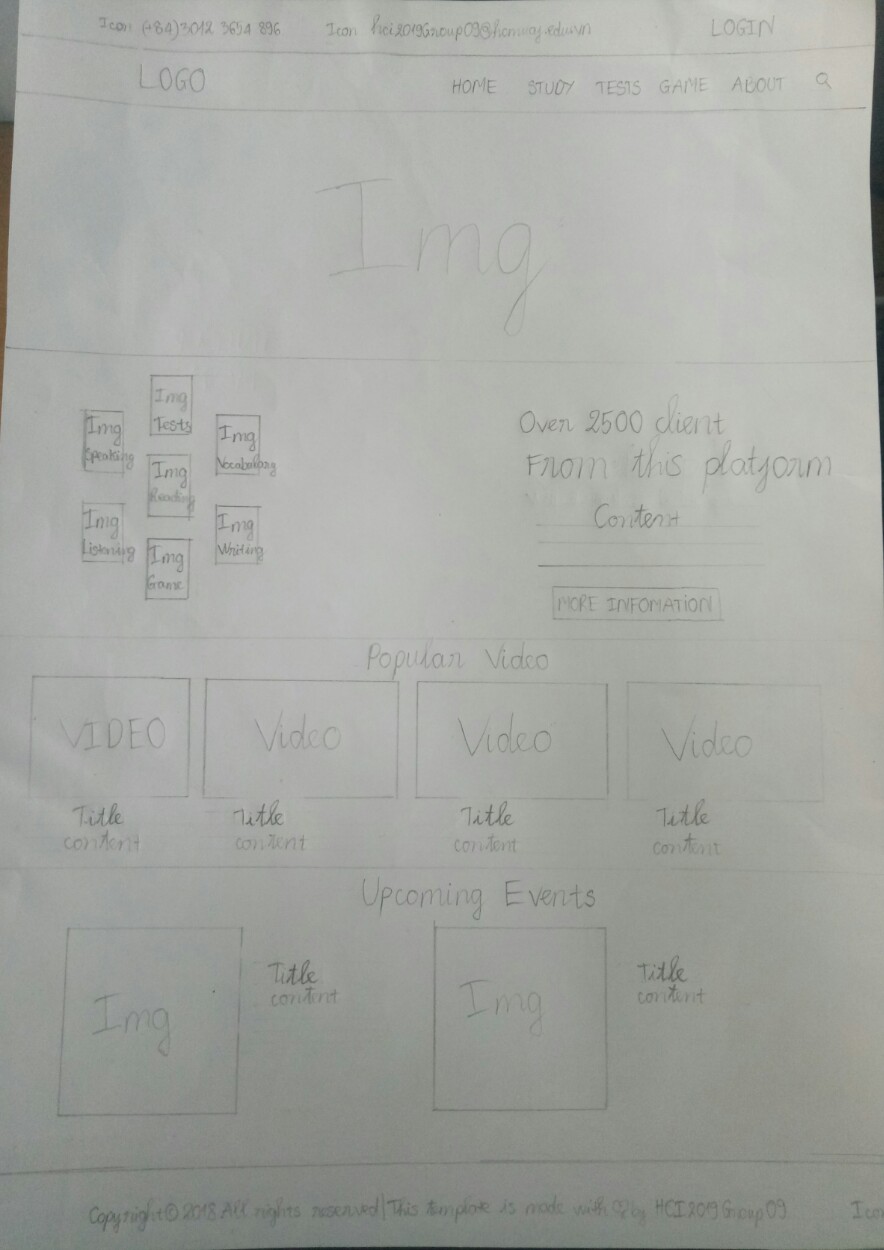 Icon (+84)3012 3654 896 Icon hci2019Group09@hcmuaf.edu.vn LOGIN
LOGO HOME STUDY TESTS GAME ABOUT
Img
Img
Tests
Img
Speaking
Img
Img
Reading
Img
Listening
Img
Writing
Img
Game
Over 2500 client
From this platform
Content
MORE INFOMATION
Popular Video
VIDEO Video Video Video
Title Title Title Title
content content content content
Upcoming Events
Img Title Img Title
content content
Copyright© 2018 All rights reserved | This template is made with ♡ by HCI2019Group09